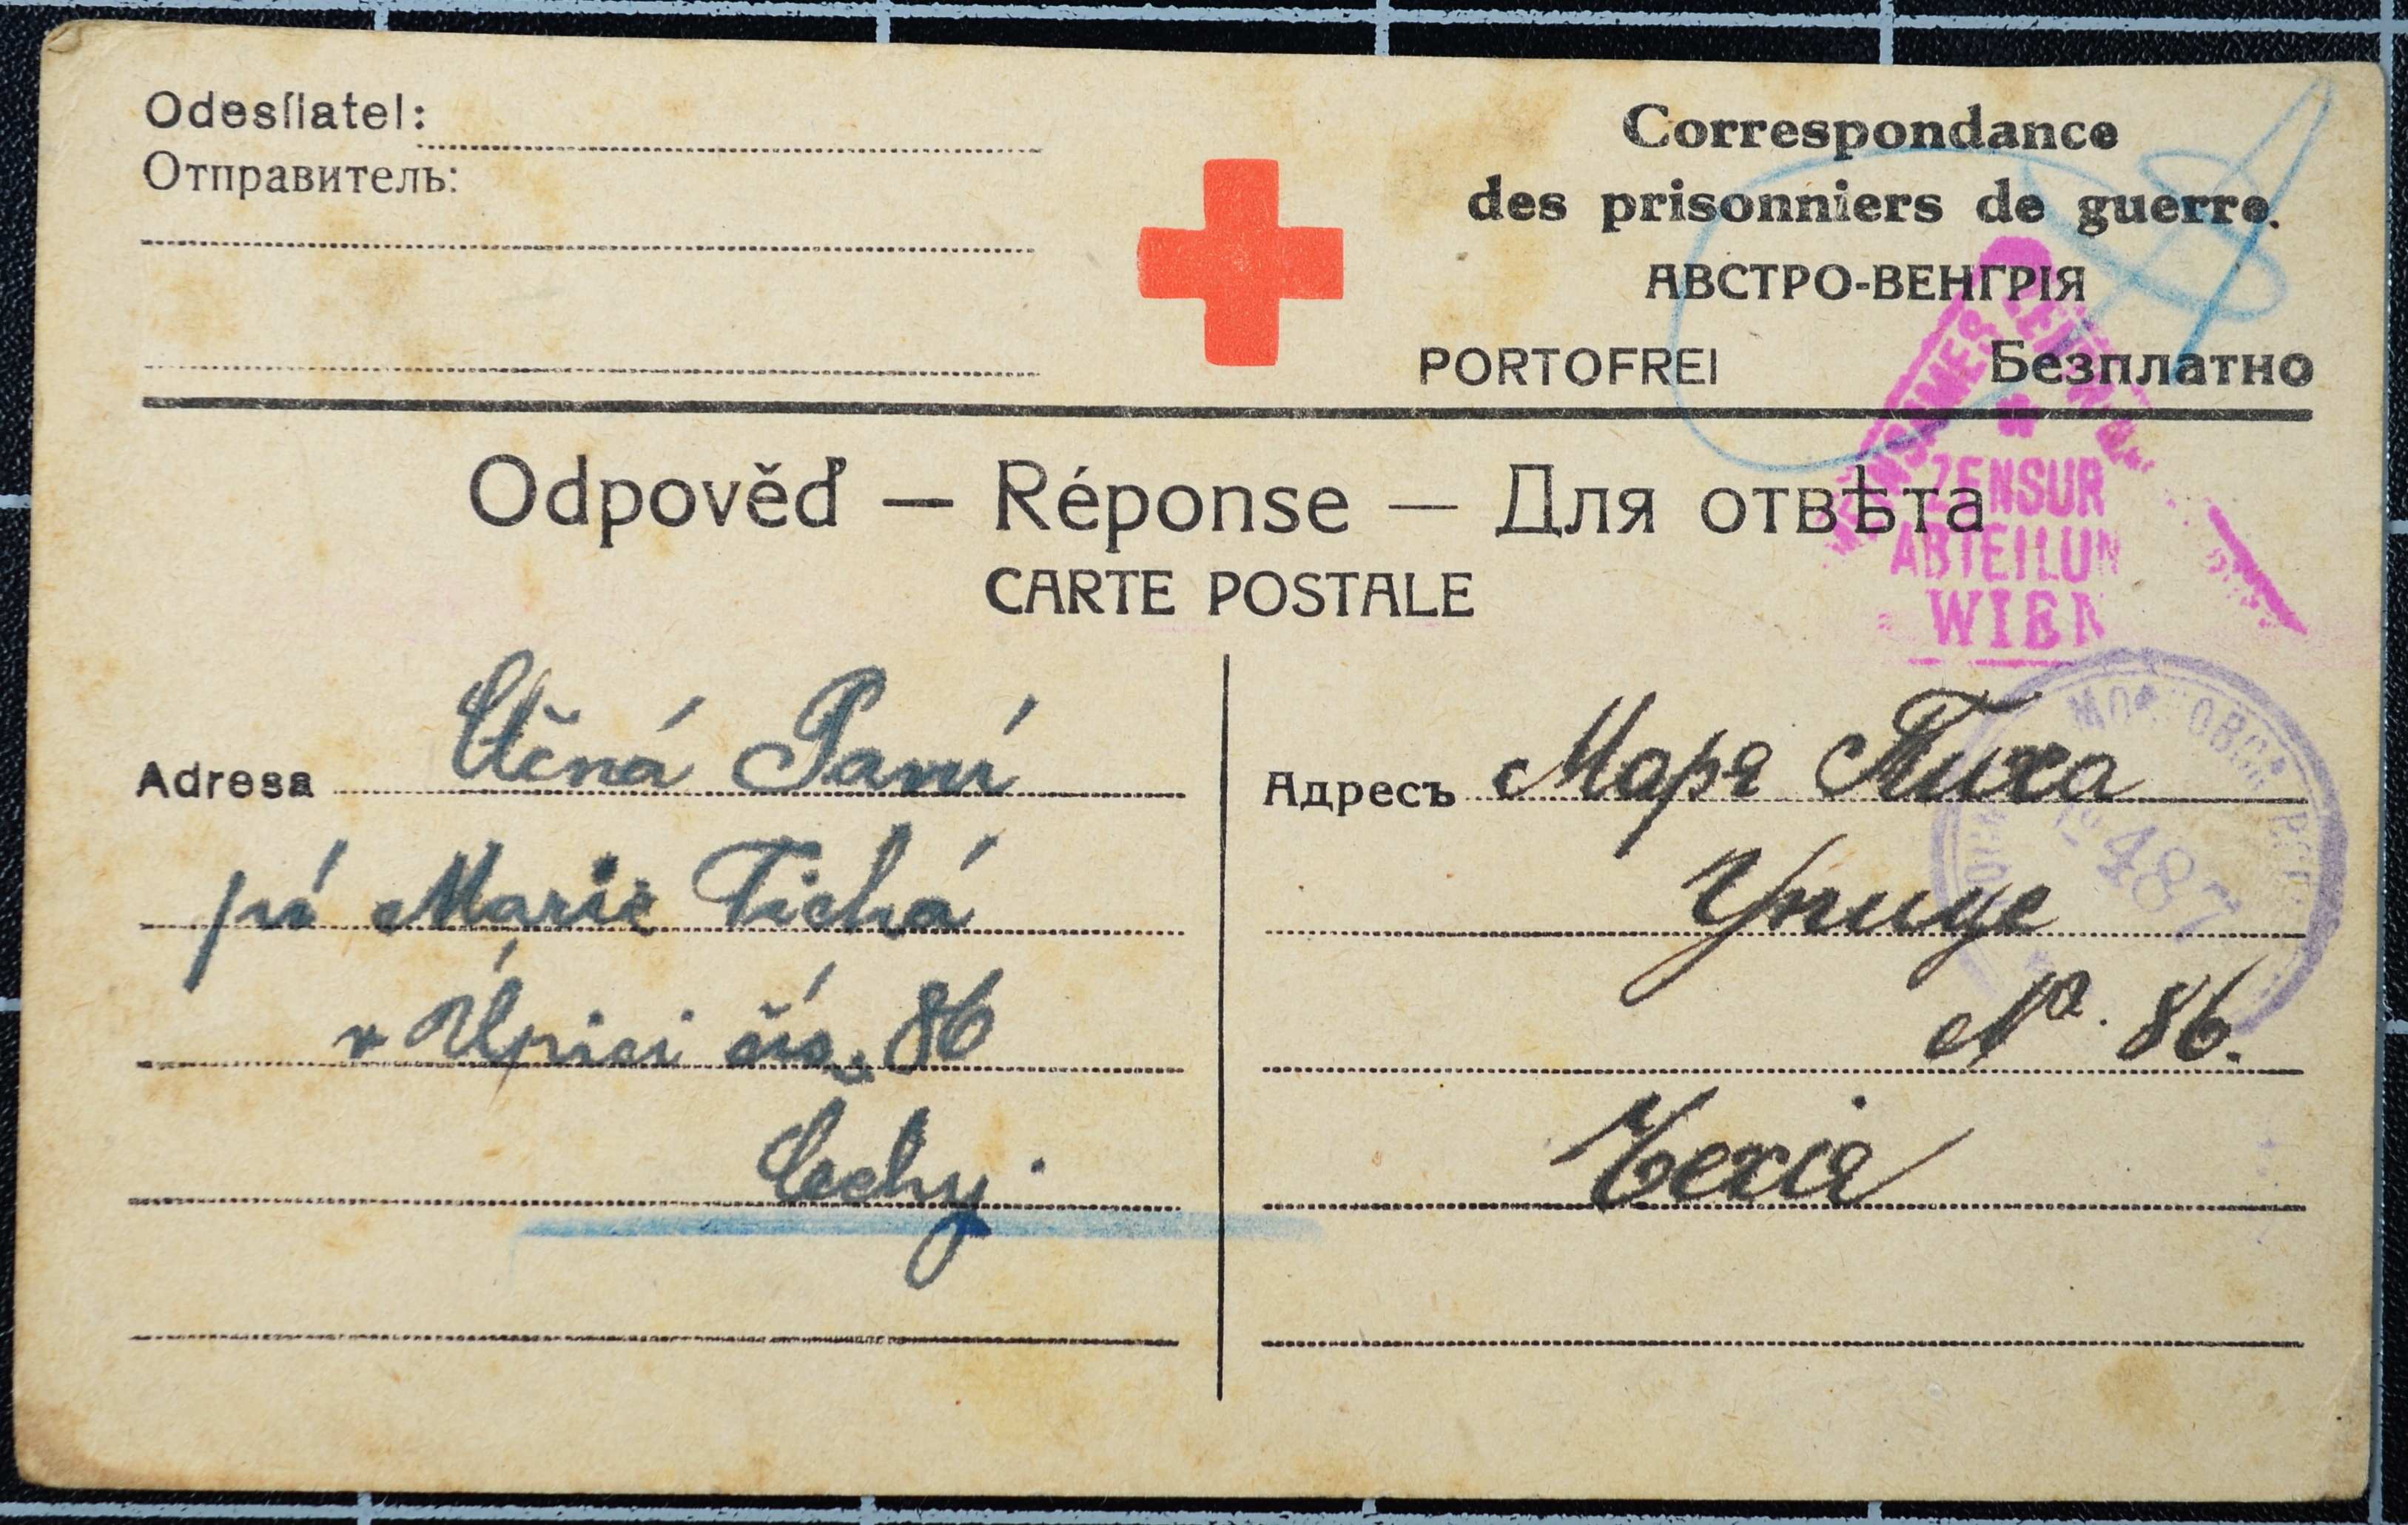 Odesílatel:
Отправитель:
Correspondance
des prisonniers de guerre.
АВСТРО-ВЕНГРІЯ
PORTOFREI Безплатно
ZENSUR
ABTEILUN
WIEN
Odpověď — Réponse — Для отвѣта
CARTE POSTALE
Adresa Ctěná Paní
pí Marie Tichá
v Úpici čís. 86
Čechy.
Адресъ Маря Тиха
Упице
№. 86.
Чехія
487